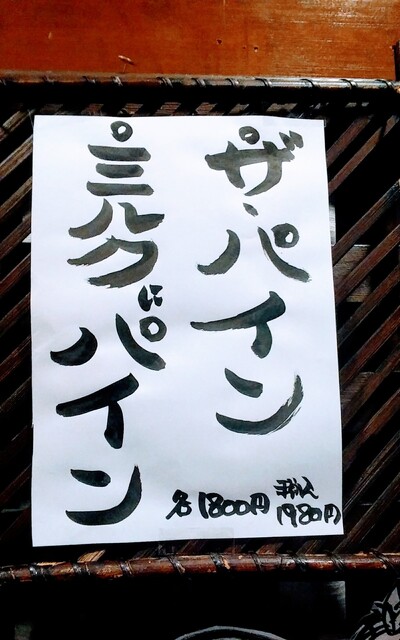 。ザ・パイン
。ミルクにパイン
各1800円
税込
1980円